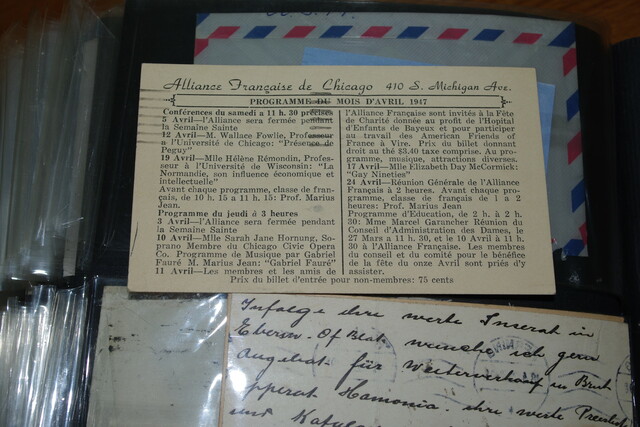 Alliance Française de Chicago 410 S. Michigan Ave.
PROGRAMME DU MOIS D'AVRIL 1947
Conférences du samedi a 11 h. 30 précises
5 Avril—l'Alliance sera fermée pendant
la Semaine Sainte
12 Avril—M. Wallace Fowlie, Professeur
a l'Université de Chicago: "Présence de
Peguy"
19 Avril—Mlle Hélène Rémondin, Profes-
seur à l'Université de Wisconsin: "La
Normandie, son influence économique et
intellectuelle"
Avant chaque programme, classe de fran-
çais, de 10 h. 15 a 11 h. 15: Prof. Marius
Jean.
Programme du jeudi á 3 heures
3 Avril—l'Alliance sera fermée pendant
la Semaine Sainte
10 Avril—Mlle Sarah Jane Hornung, So-
prano Membre du Chicago Civic Opera
Co. Programme de Musique par Gabriel
Fauré M. Marius Jean: "Gabriel Fauré"
11 Avril—Les membres et les amis de
l'Alliance Française sont invités à la Fête
de Charité donnée au profit de l'Hopital
d'Enfants de Bayeux et pour participer
au travail des American Friends of
France à Vire. Prix du billet donnant
droit au thé $3.40 taxe comprise. Au pro-
gramme, musique, attractions diverses.
17 Avril—Mlle Elizabeth Day McCormick:
"Gay Nineties"
24 Avril—Réunion Générale de l'Alliance
Français à 2 heures. Avant chaque pro-
gramme, classe de français de 1 a 2
heures: Prof. Marius Jean
Programme d'Education, de 2 h. à 2 h.
30: Mme Marcel Garancher Réunion du
Conseil d'Administration des Dames, le
27 Mars a 11 h. 30, et le 10 Avril à 11 h.
30 à l'Alliance Française. Les membres
du conseil et du comité pour le bénéfice
de la fête du onze Avril sont priés d'y
assister.
Prix du billet d'entrée pour non-membres: 75 cents
Infolge ihre werte Inserat in
Of Blat wünsche ich gern
Angebot für Weiterverkauf in Brut
apperat Hamonia. ihre werte Preislist
und